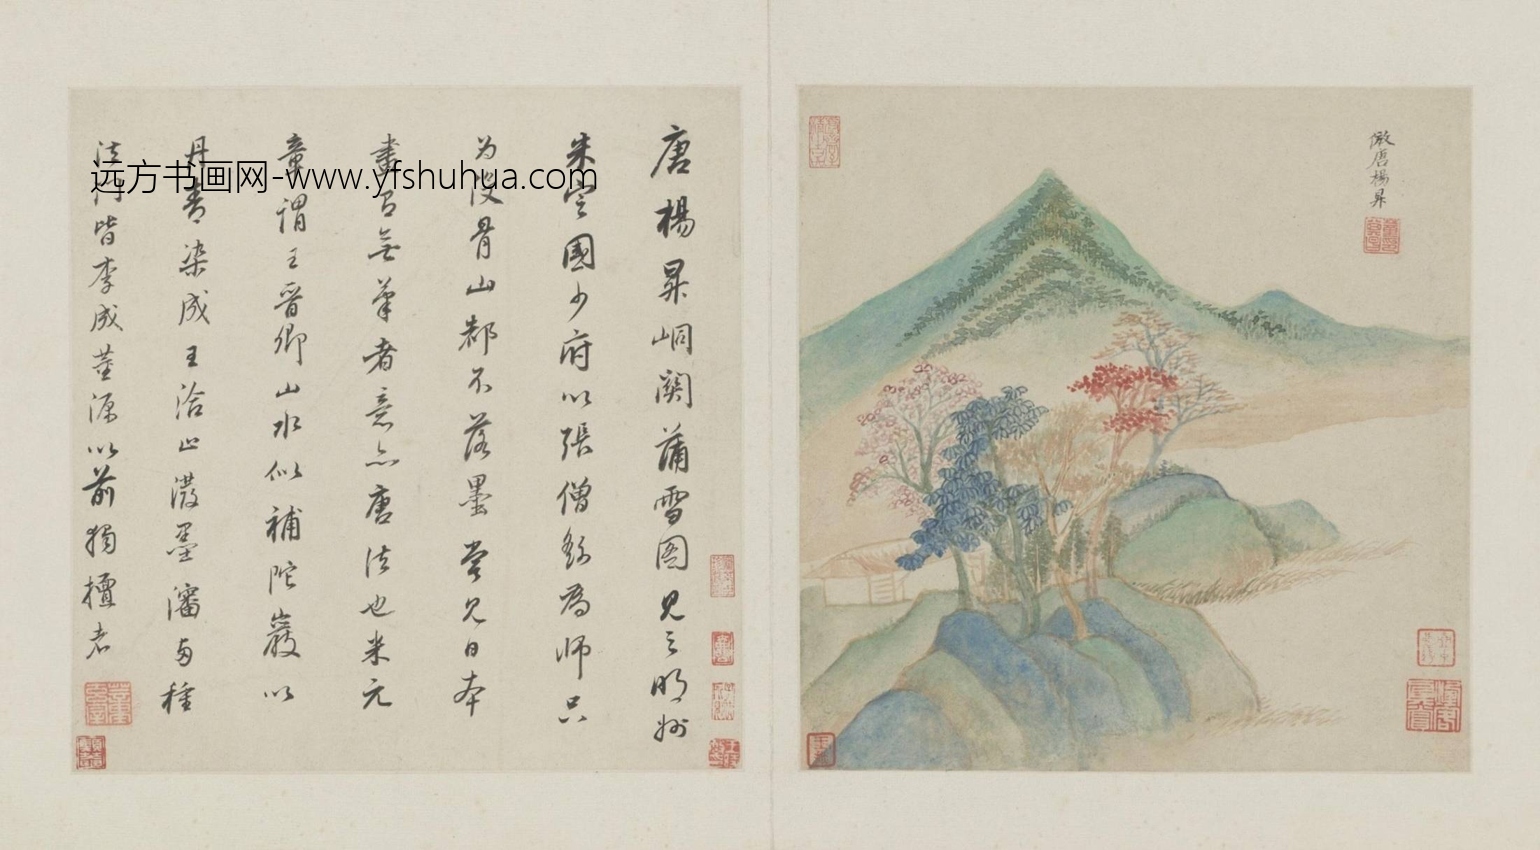 倣唐楊昇
唐楊昇峒關蒲雪図見之明州
朱定國少府以張僧繇為師只
为沒骨山都不落墨嘗見日本
畫有無筆者意亦唐法也米元
章謂王晉卿山水似補陀巖以
丹青染成王洽止潑墨瀋種
法皆李成董源以前獨擅者
远方书画网-www.yfshuhua.com